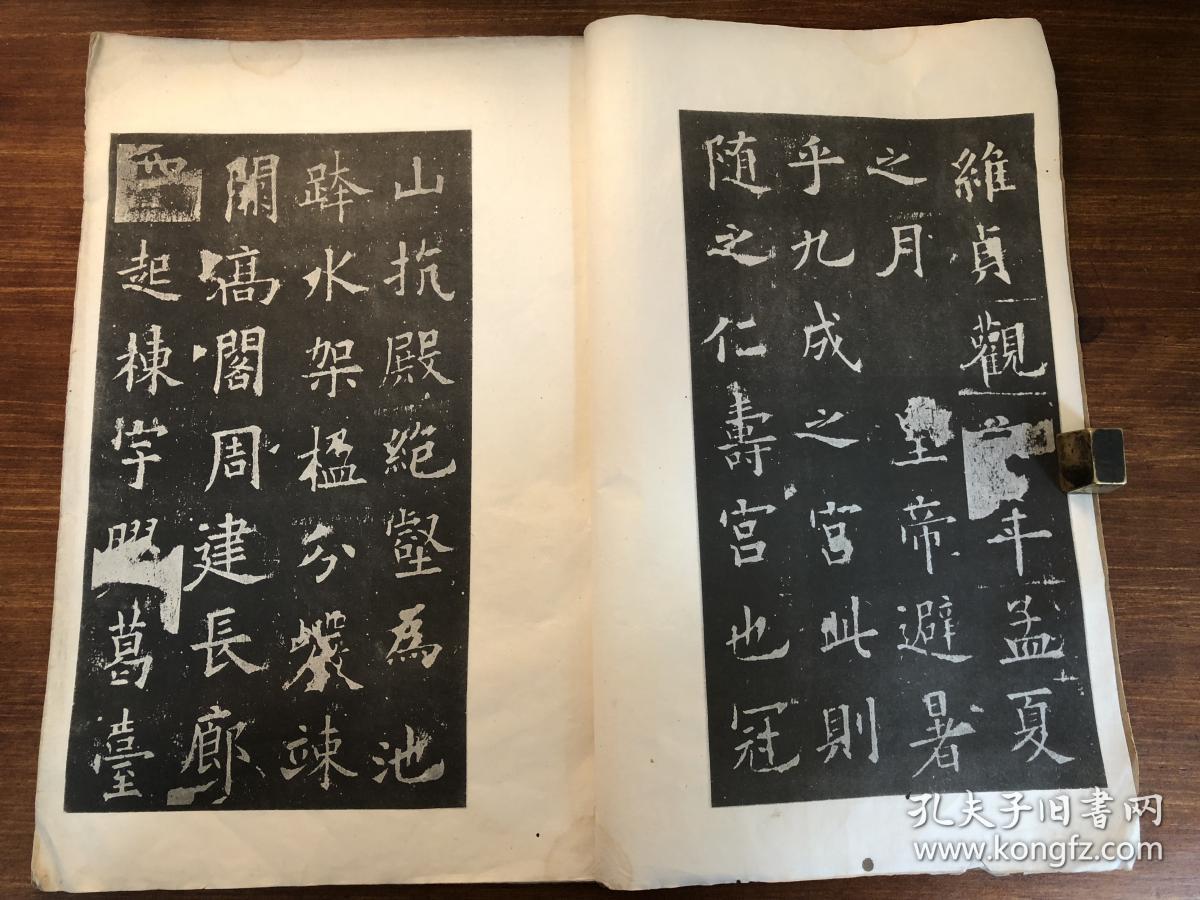 維貞觀六年孟夏
之月皇帝避暑
乎九成之宮此則
随之仁壽宮也冠
山抗殿絕壑為池
跨水架楹分巖竦
闕高閣周建長廊
四起棟宇膠葛臺
孔夫子旧书网
www.kongfz.com